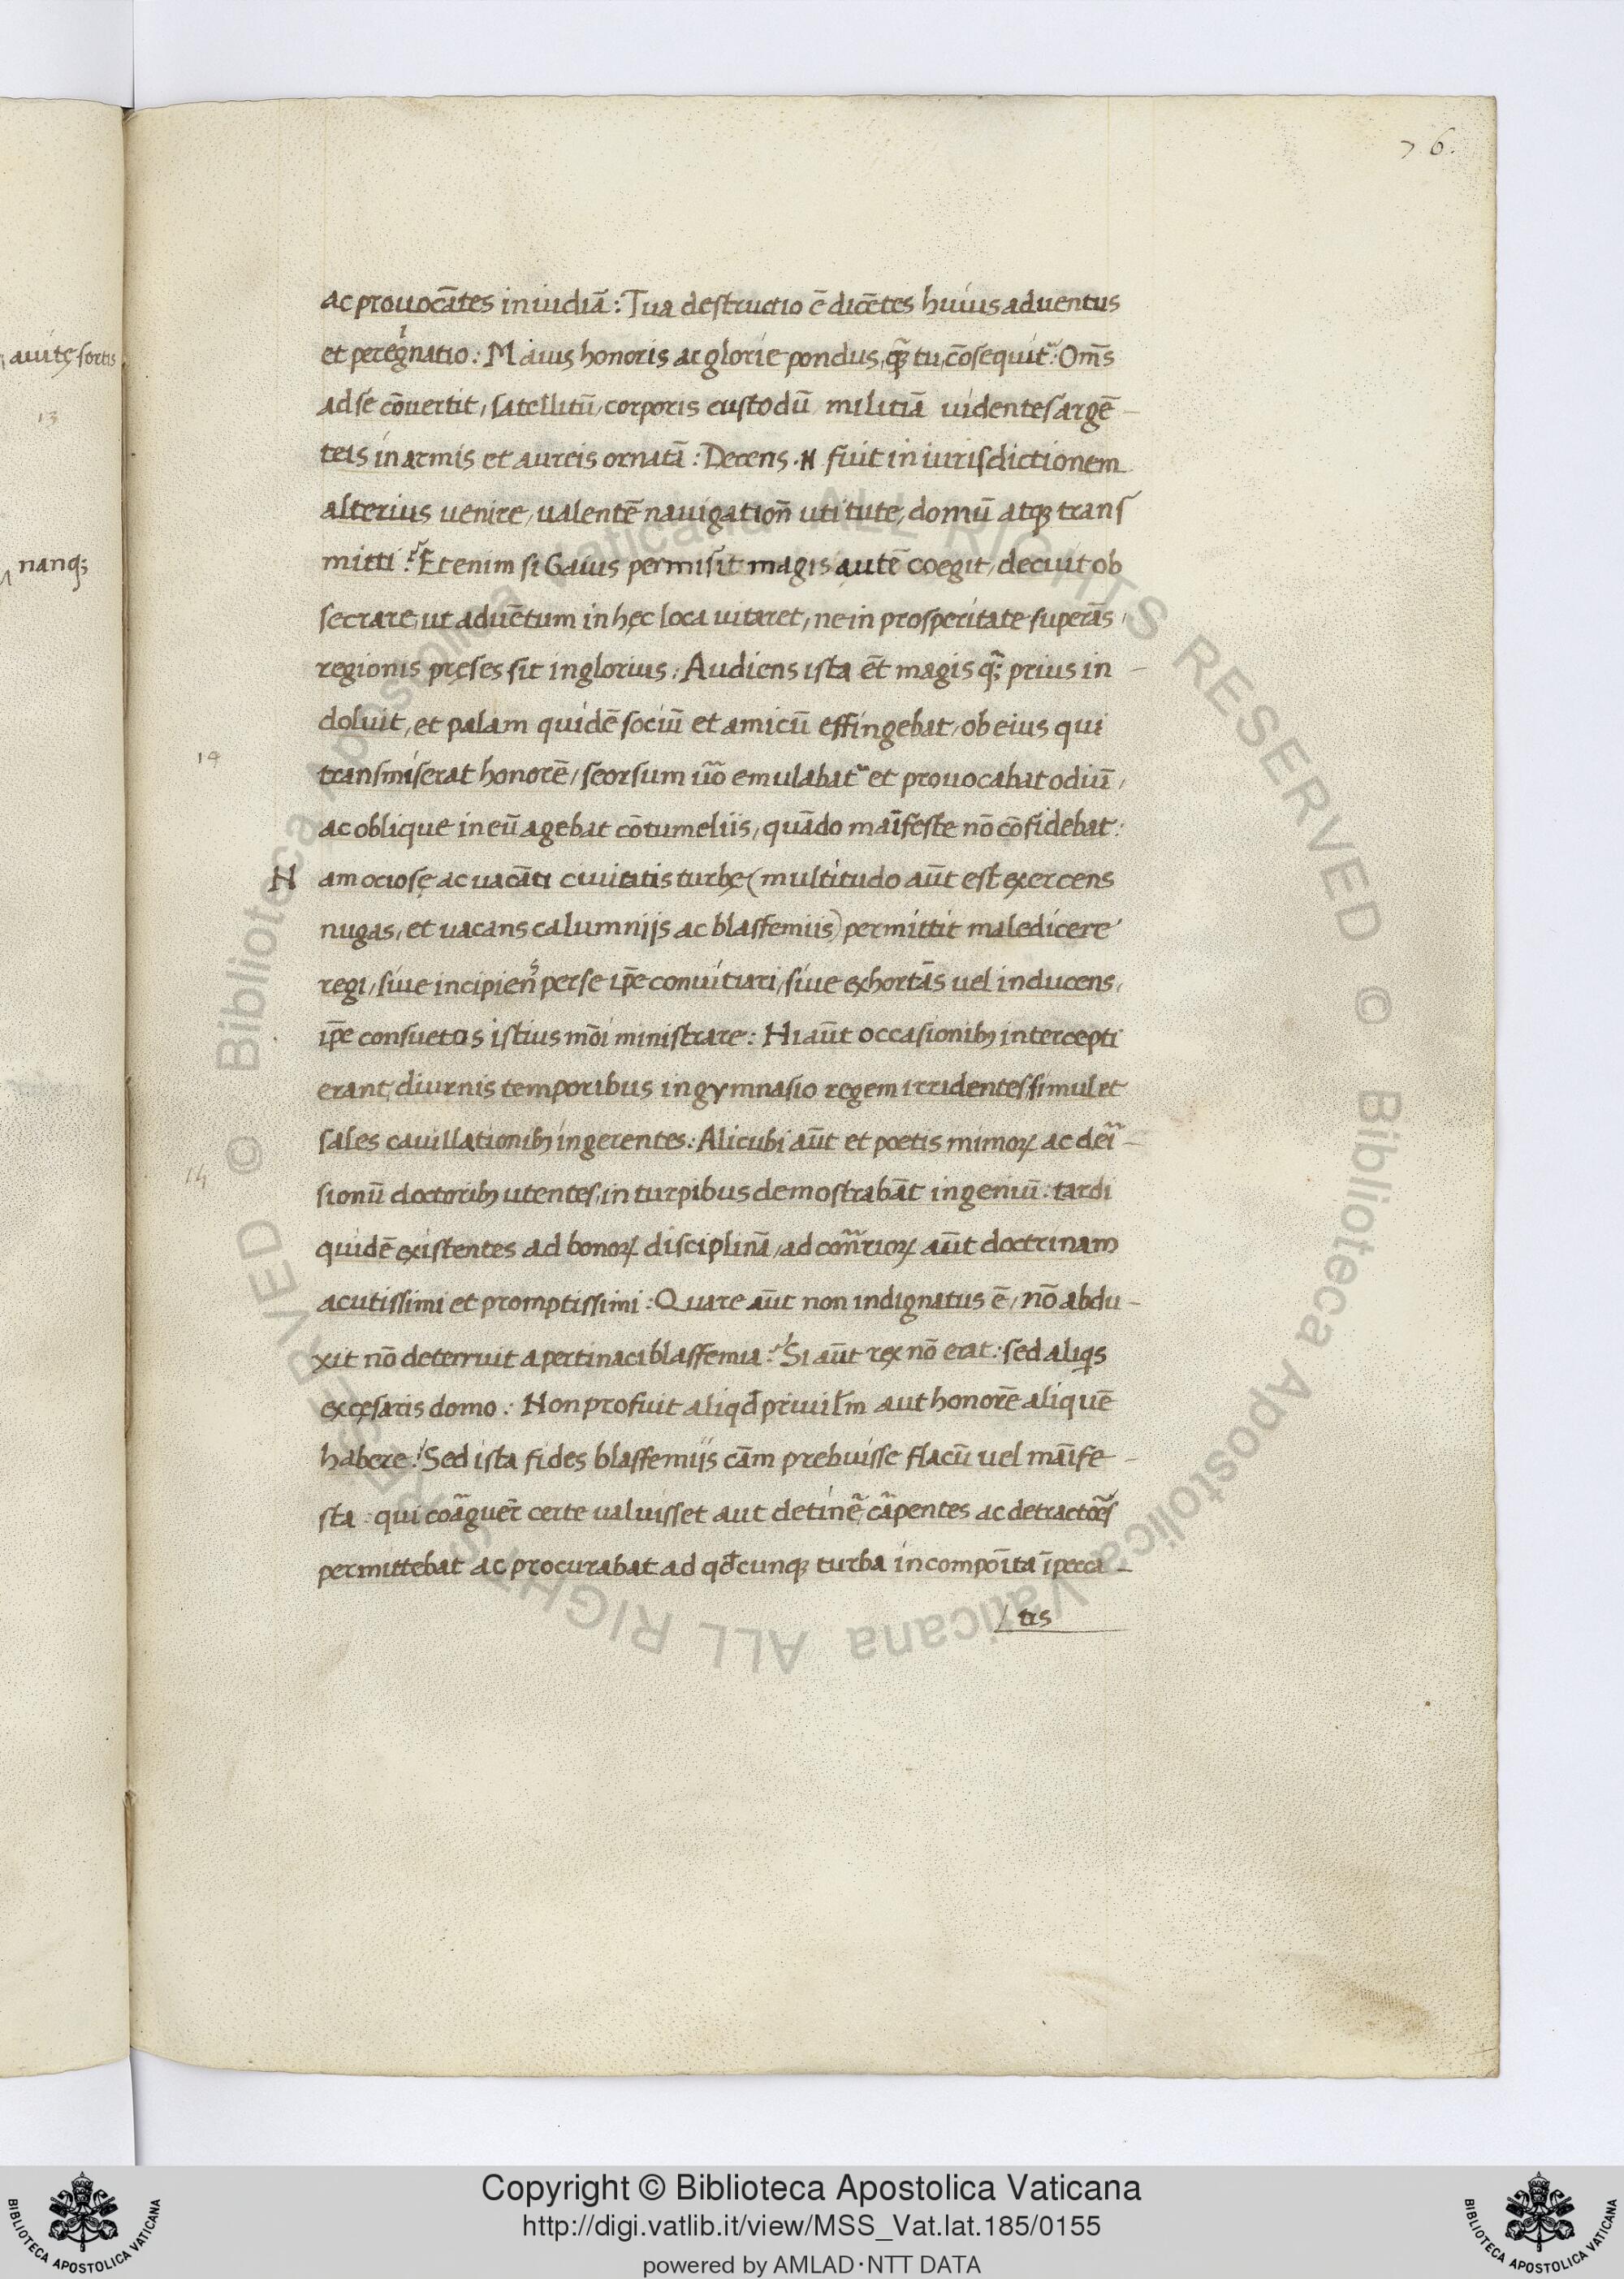 76.
auitę sortis
13
nanq;
ac prouocātes iniudiā: Tua destructio ē dicētes huius aduentus
et peregnatio: Maius honoris ac glorie pondus, q̄ tu, cōsequit᷒: Om̄s
ad se cōuertit, satellitū, corporis custodū militiā uidentes argē-
teis in armis et aureis ornatā: Decens .N fuit in iurisdictionem
alterius uenire, ualentē nauigationē uti tute, domū atq; trans
mitti? Etenim si Gaius permisit magis autē coegit, decuit ob
secrare, ut aduētum in hęc loca uitaret, ne in prosperitate superās,
regionis pręses sit inglorius: Audiens ista ēt magis q̄; prius in-
doluit, et palam quidē sociū et amicū effingebat, ob eius qui
19
transmiserat honorē, seorsum ūo emulabat᷒ et prouocabat odiū,
ac oblique in eū agebat cōtumeliis, quādo māifeste nō cōfidebat:
Nam ociosę ac uacāti ciuitatis turbę (multitudo aūt est exercens
nugas, et uacans calumnijs ac blasfemiis) permittit maledicere
regi, siue incipiens per se ip̄e conuitiari, siue exhortās uel inducens,
ip̄e consuetos istius mōi ministrare: Hi aūt occasionibꝫ intercepti
erant, diurnis temporibus in gymnasio regem irridentes, simul et
sales cauillationibꝫ ingerentes: Alicubi aūt et poetis mimoꝝ ac deri-
14
sionū doctoribꝫ utentes, in turpibus demostrabāt ingeniū: tardi
quidē existentes ad bonoꝝ disciplinā, ad cont̄rioꝝ aūt doctrinam
acutissimi et promptissimi: Quare aūt non indignatus ē, nō abdu-
xit nō deterruit a pertinaci blasfemia? Si aūt rex nō erat: sed aliqs
ex cęsaris domo: Non profuit aliqd̄ priuil̄m aut honorē aliquē
habere? Sed ista fides blasfemijs cām prebuisse flacū uel māife-
sta: qui coāguer̄ certe ualuisset aut detinē, cāpentes ac detractōes
permittebat ac procurabat ad qd̄cunq; turba incompōita īpeca-
tis
Copyright © Biblioteca Apostolica Vaticana
http://digi.vatlib.it/view/MSS_Vat.lat.185/0155
powered by AMLAD·NTT DATA
BIBLIOTECA APOSTOLICA VATICANA
BIBLIOTECA APOSTOLICA VATICANA
© Biblioteca Apostolica Vaticana ALL RIGHTS RESERVED
© Biblioteca Apostolica Vaticana ALL RIGHTS RESERVED